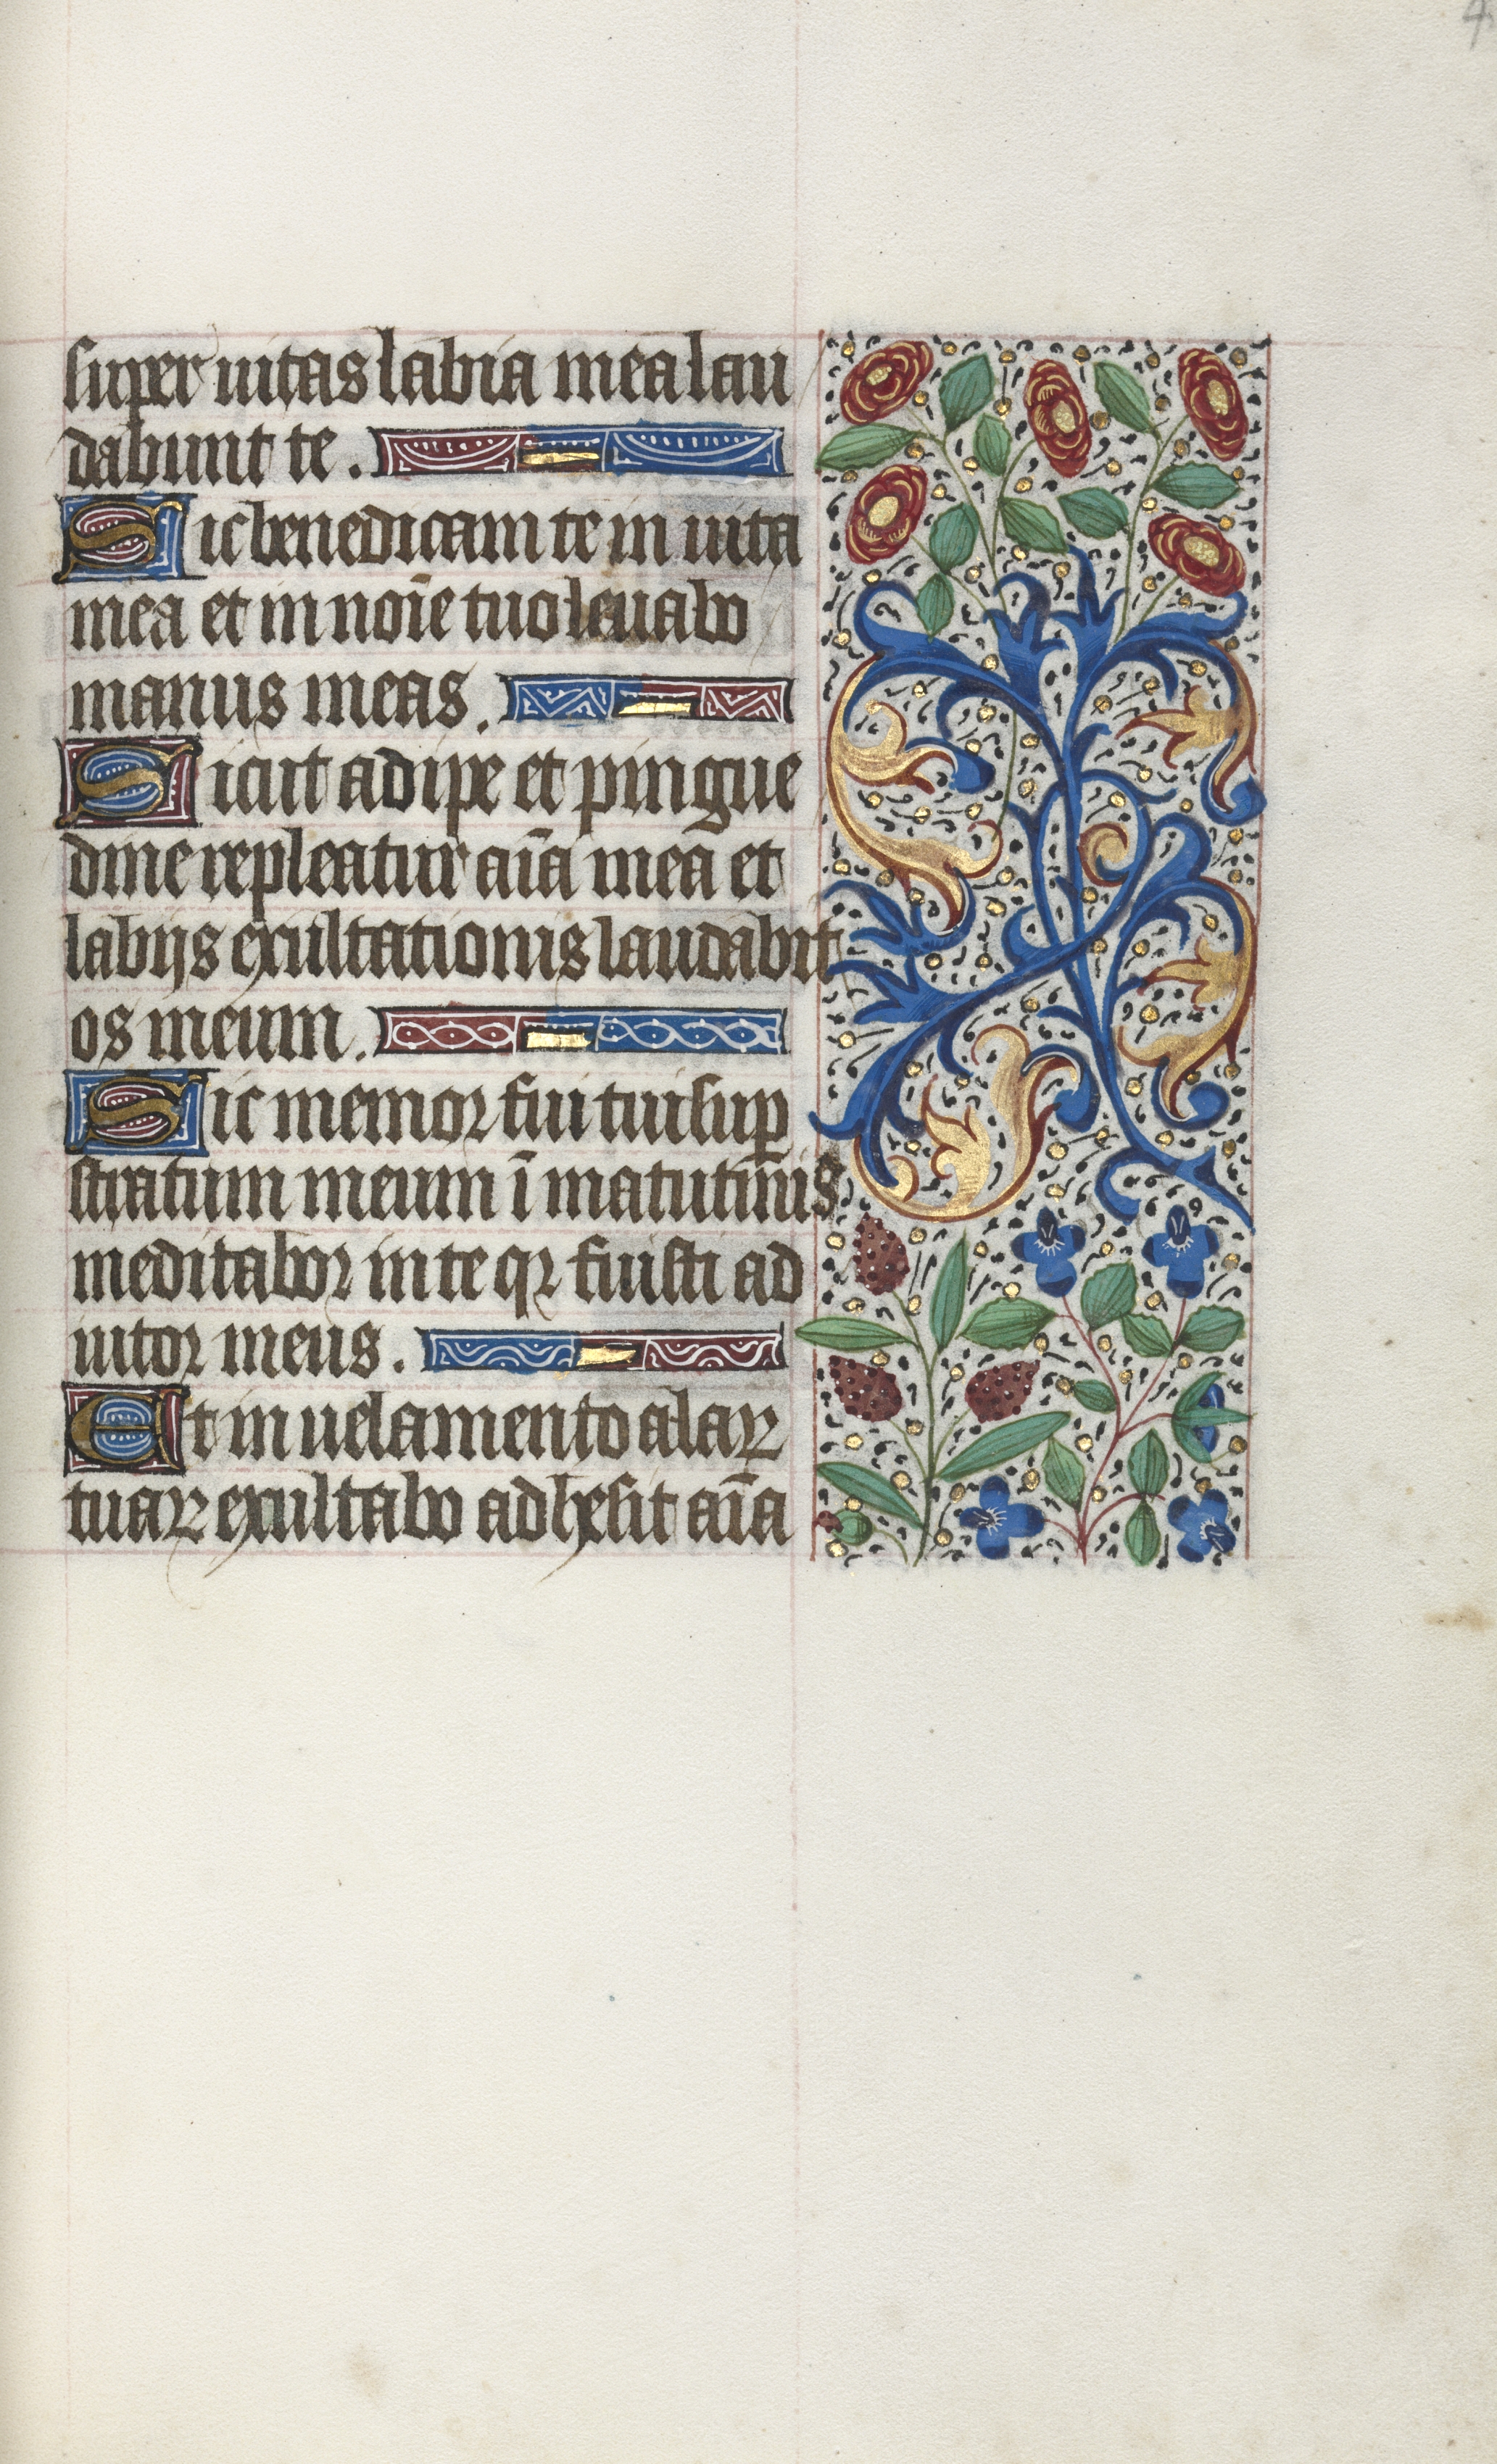 super uitas labia mea lau
dabunt te.
Sic benedicam te in uita
mea et in noīe tuo leuabo
manus meas.
Sicut adipe et pingue
dine repleatur aīa mea et
labijs exultationis laudabit
os meum.
Sic memor fui tui sup
stratum meum ī matutinis
meditabor in te qr fuisti ad
iutor meus.
Et in uelamento alaꝝ
tuaꝝ exultabo adhesit aīa